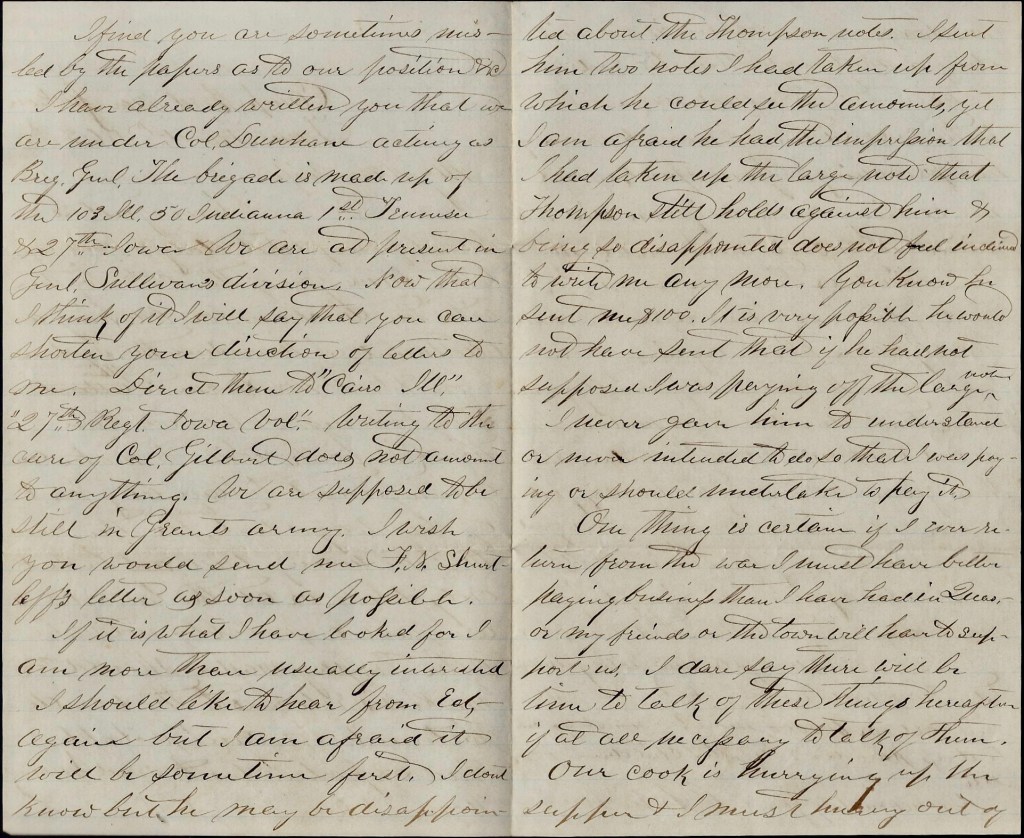 I find you are sometimes mis-
led by the papers as to our position &c
I have already written you that we
are under Col. Dunham acting as
Brig. Genl. The brigade is made up of
the 103 Ill. 50 Indianna 1st Tennisee
& 27th Iowa We are at present in
Genl. Sullivans division. Now that
I think of it I will say that you can
shorten your direction of letters to
me. Direct them to "Cairo Ill"
"27th Regt. Iowa Vol." Writing to the
care of Col. Gilbert does not amount
to anything. We are supposed to be
still in Grants army. I wish
you would send me F. N. Shurt-
leff's letter as soon as possible.
If it is what I have looked for I
am more than usually interested
I should like to hear from Ed,
again but I am afraid it
will be sometime first. I dont
know but he may be disappoin-
ted about the Thompson notes. I sent
him two notes I had taken up from
which he could see the amounts, yet
I am afraid he had the impression that
I had taken up the large note that
Thompson still holds against him &
being so disappointed does not feel inclined
to write me any more. You know he
sent me $100. It is very possible he would
not have sent that if he had not
supposed I was paying off the large note
I never gave him to understand
or never intended to do so that I was pay-
ing or should undertake to pay it.
One thing is certain if I ever re-
turn from the war I must have better
paying business than I have had in Quas.
or my friends or the town will have to sup-
port us. I dare say there will be
time to talk of these things hereafter
if at all necessary to talk of them.
Our cook is hurrying up the
supper & I must hurry out of